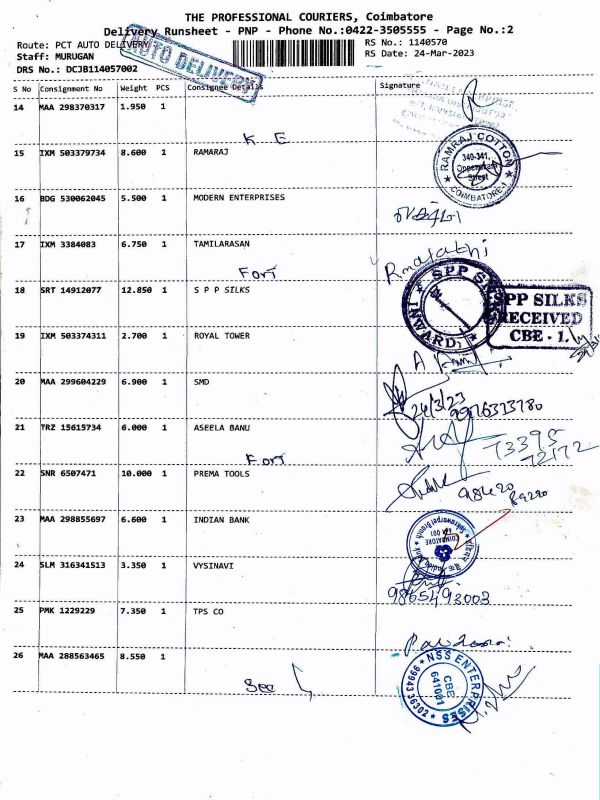 THE PROFESSIONAL COURIERS, Coimbatore
Delivery Runsheet - PNP - Phone No.:0422-3505555 - Page No.:2
Route: PCT AUTO DELIVERY
RS No.: 1140570
Staff: MURUGAN
RS Date: 24-Mar-2023
DRS No.: DCJB114057002
AUTO DELIVERY
S No Consignment No Weight PCS Consignee Details Signature
14 MAA 298370317 1.950 1
K E
15 IXM 503379734 8.600 1 RAMARAJ
RAMRAJ COTTON
340-341,
Oppanakara
Street
COIMBATORE-1
16 BDG 530062045 5.500 1 MODERN ENTERPRISES
17 IXM 3384083 6.750 1 TAMILARASAN
Fort
18 SRT 14912077 12.850 1 S P P SILKS
SPP SILKS
INWARD
SPP SILKS
RECEIVED
CBE - 1.
19 IXM 503374311 2.700 1 ROYAL TOWER
20 MAA 299604229 6.900 1 SMD
24/3/23
9976323780
21 TRZ 15615734 6.000 1 ASEELA BANU
73395
72172
Fort
22 SNR 6507471 10.000 1 PREMA TOOLS
98420
89290
23 MAA 298855697 6.600 1 INDIAN BANK
COIMBATORE
641 001
24 SLM 316341513 3.350 1 VYSINAVI
9865493003
25 PMK 1229229 7.350 1 TPS CO
26 MAA 288563465 8.550 1
See
NSS ENTERPRISES
CBE
641001
9994336302